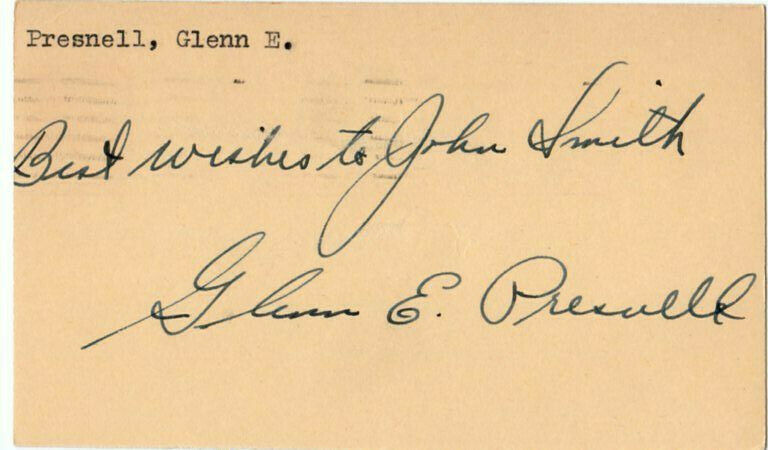 Presnell, Glenn E.
Best wishes to John Smith
Glenn E. Presnell